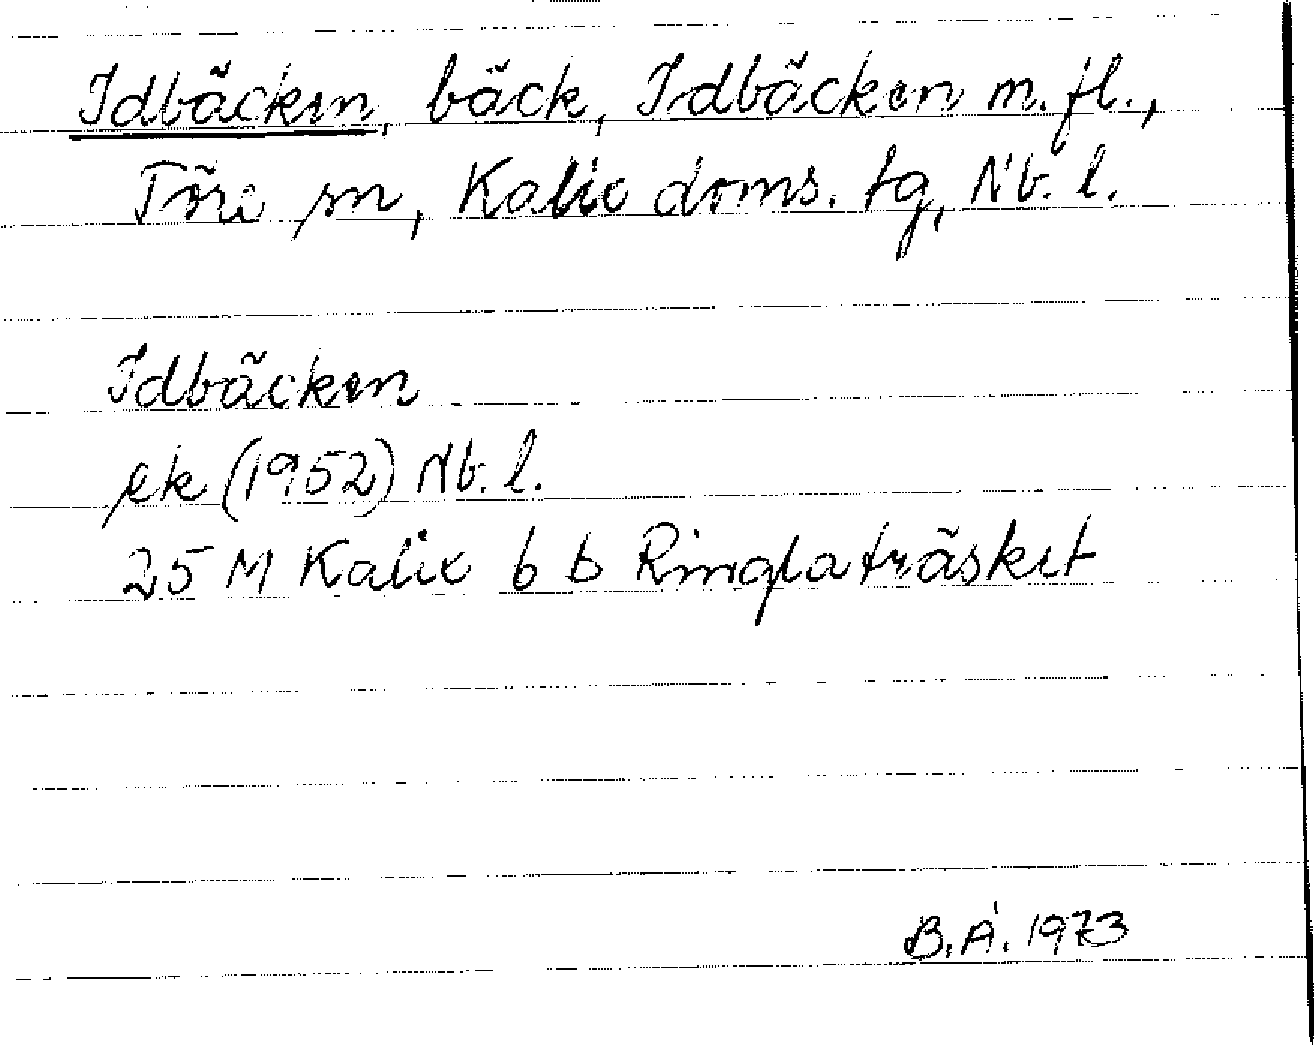 Idbäcken, bäck, Idbäcken m.fl.,
Töre sn, Kalix doms. tg, Nb. l.
Idbäcken
ek (1952) Nb. l.
25 M Kalix b b Ringlaträsket
B.Å. 1973